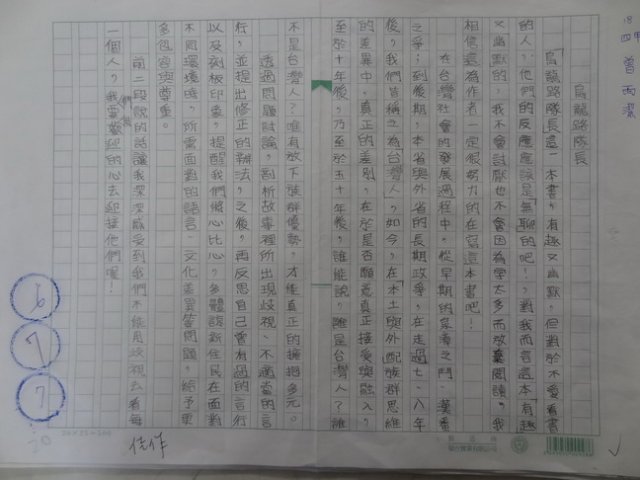 18
四甲 曾雨潔
烏龍路隊長
「烏龍路隊長」這一本書，有趣又幽默，但對於不愛看書
的人，他們的反應應該是「無聊的吧！」，對我而言這本「有趣
又幽默的，我不會討厭也不會因為字太多而放棄閱讀，我
相信這為作者一定很努力的在寫這本書吧！
在台灣社會的發展過程中，從早期的泉漳之鬥、漢番
之爭，到後期，本省與外省的長期政爭，在走過七、八年
後，我們皆稱之為「台灣人」，如今，在本土與外配族群思維
的差異中，真正的差別，在於是否願意真正接受與融入，
至於十年後，乃至於五十年後，誰能說，誰是台灣人？誰
不是台灣人？唯有放下族群優勢，才能真正的擁抱多元。
透過問題討論，剖析故事裡所出現歧視、不適當的言
行，並提出修正的辦法，之後，再反思自己曾有過的言行
以及刻板印象，提醒我們將心比心，多體諒新住民在面對
不同環境時，所需面對的語言、文化差異等問題，給予更
多包容與尊重。
前二段說的話讓我深深感受到我們不能用歧視去看每
一個人，我們要歡迎的心去迎接他們喔！
6
7
7
20
佳作